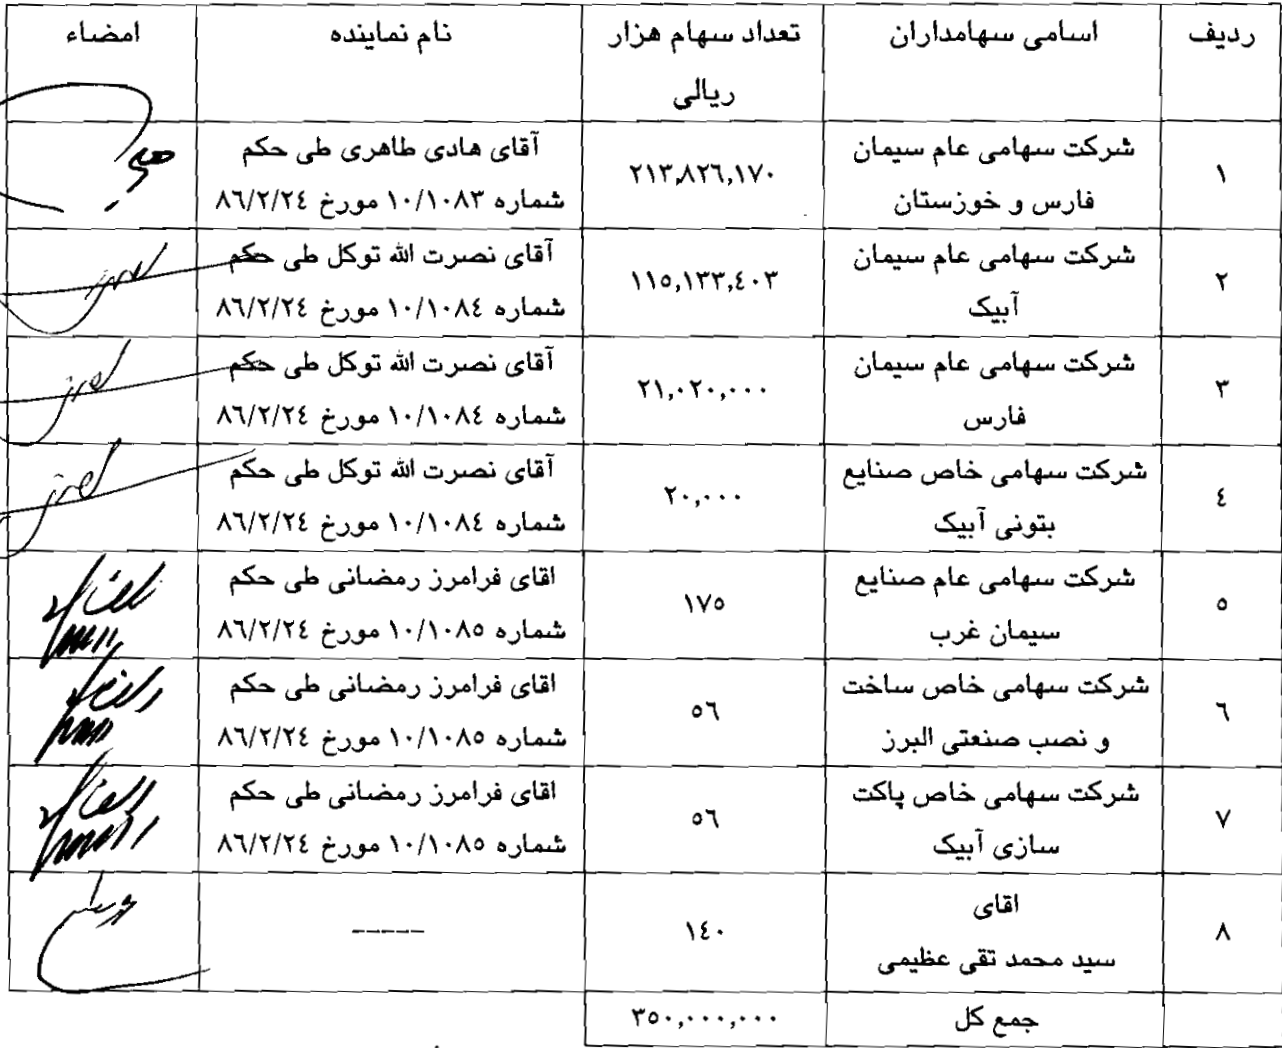 ردیف
اسامی سهامداران
تعداد سهام هزار
ریالی
نام نماینده
امضاء
١
شرکت سهامی عام سیمان
فارس و خوزستان
٢١٣,٨٢٦,١٧٠
آقای هادی طاهری طی حکم
شماره ١٠/١٠٨٣ مورخ ٨٦/٢/٢٤
٢
شرکت سهامی عام سیمان
آبیک
١١٥,١٣٣,٤٠٣
آقای نصرت الله توکل طی حکم
شماره ١٠/١٠٨٤ مورخ ٨٦/٢/٢٤
٣
شرکت سهامی عام سیمان
فارس
٢١,٠٢٠,٠٠٠
آقای نصرت الله توکل طی حکم
شماره ١٠/١٠٨٤ مورخ ٨٦/٢/٢٤
٤
شرکت سهامی خاص صنایع
بتونی آبیک
٢٠,٠٠٠
آقای نصرت الله توکل طی حکم
شماره ١٠/١٠٨٤ مورخ ٨٦/٢/٢٤
٥
شرکت سهامی عام صنایع
سیمان غرب
١٧٥
اقای فرامرز رمضانی طی حکم
شماره ١٠/١٠٨٥ مورخ ٨٦/٢/٢٤
٦
شرکت سهامی خاص ساخت
و نصب صنعتی البرز
٥٦
اقای فرامرز رمضانی طی حکم
شماره ١٠/١٠٨٥ مورخ ٨٦/٢/٢٤
٧
شرکت سهامی خاص پاکت
سازی آبیک
٥٦
اقای فرامرز رمضانی طی حکم
شماره ١٠/١٠٨٥ مورخ ٨٦/٢/٢٤
٨
اقای
سید محمد تقی عظیمی
١٤٠
-----
جمع کل
٣٥٠,٠٠٠,٠٠٠